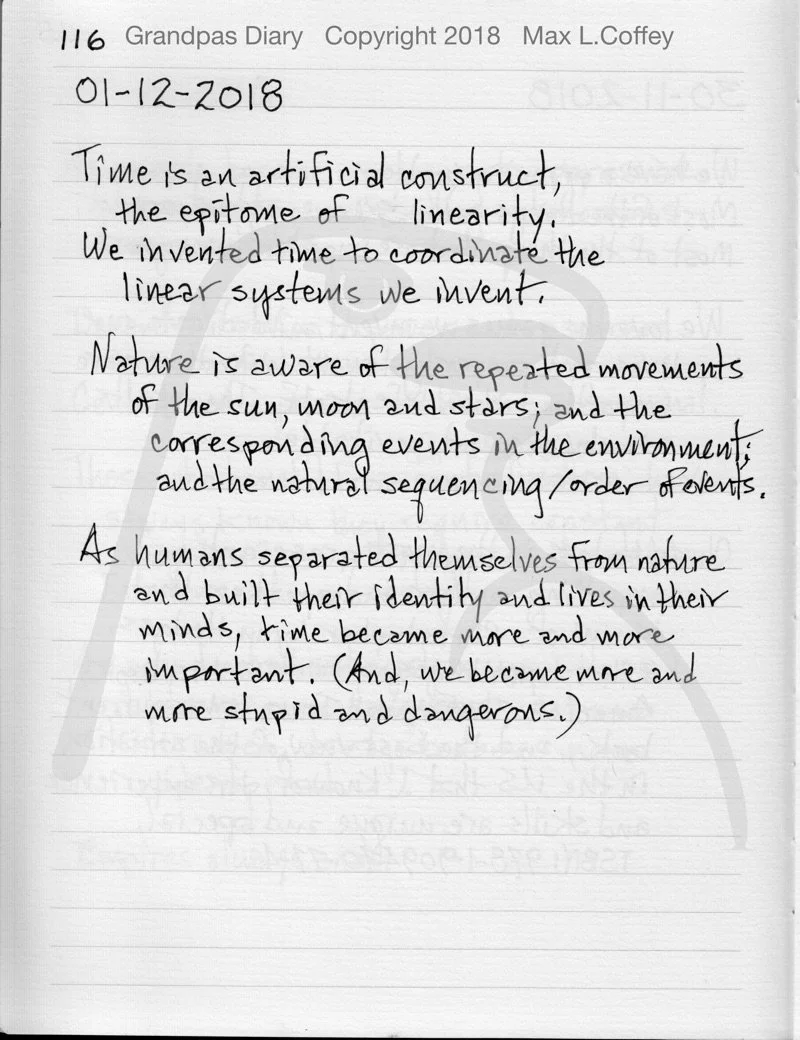 116 Grandpas Diary Copyright 2018 Max L.Coffey
01-12-2018
Time is an artificial construct,
the epitome of linearity.
We invented time to coordinate the
linear systems we invent.
Nature is aware of the repeated movements
of the sun, moon and stars; and the
corresponding events in the environment;
and the natural sequencing/order of events.
As humans separated themselves from nature
and built their identity and lives in their
minds, time became more and more
important. (And, we became more and
more stupid and dangerous.)